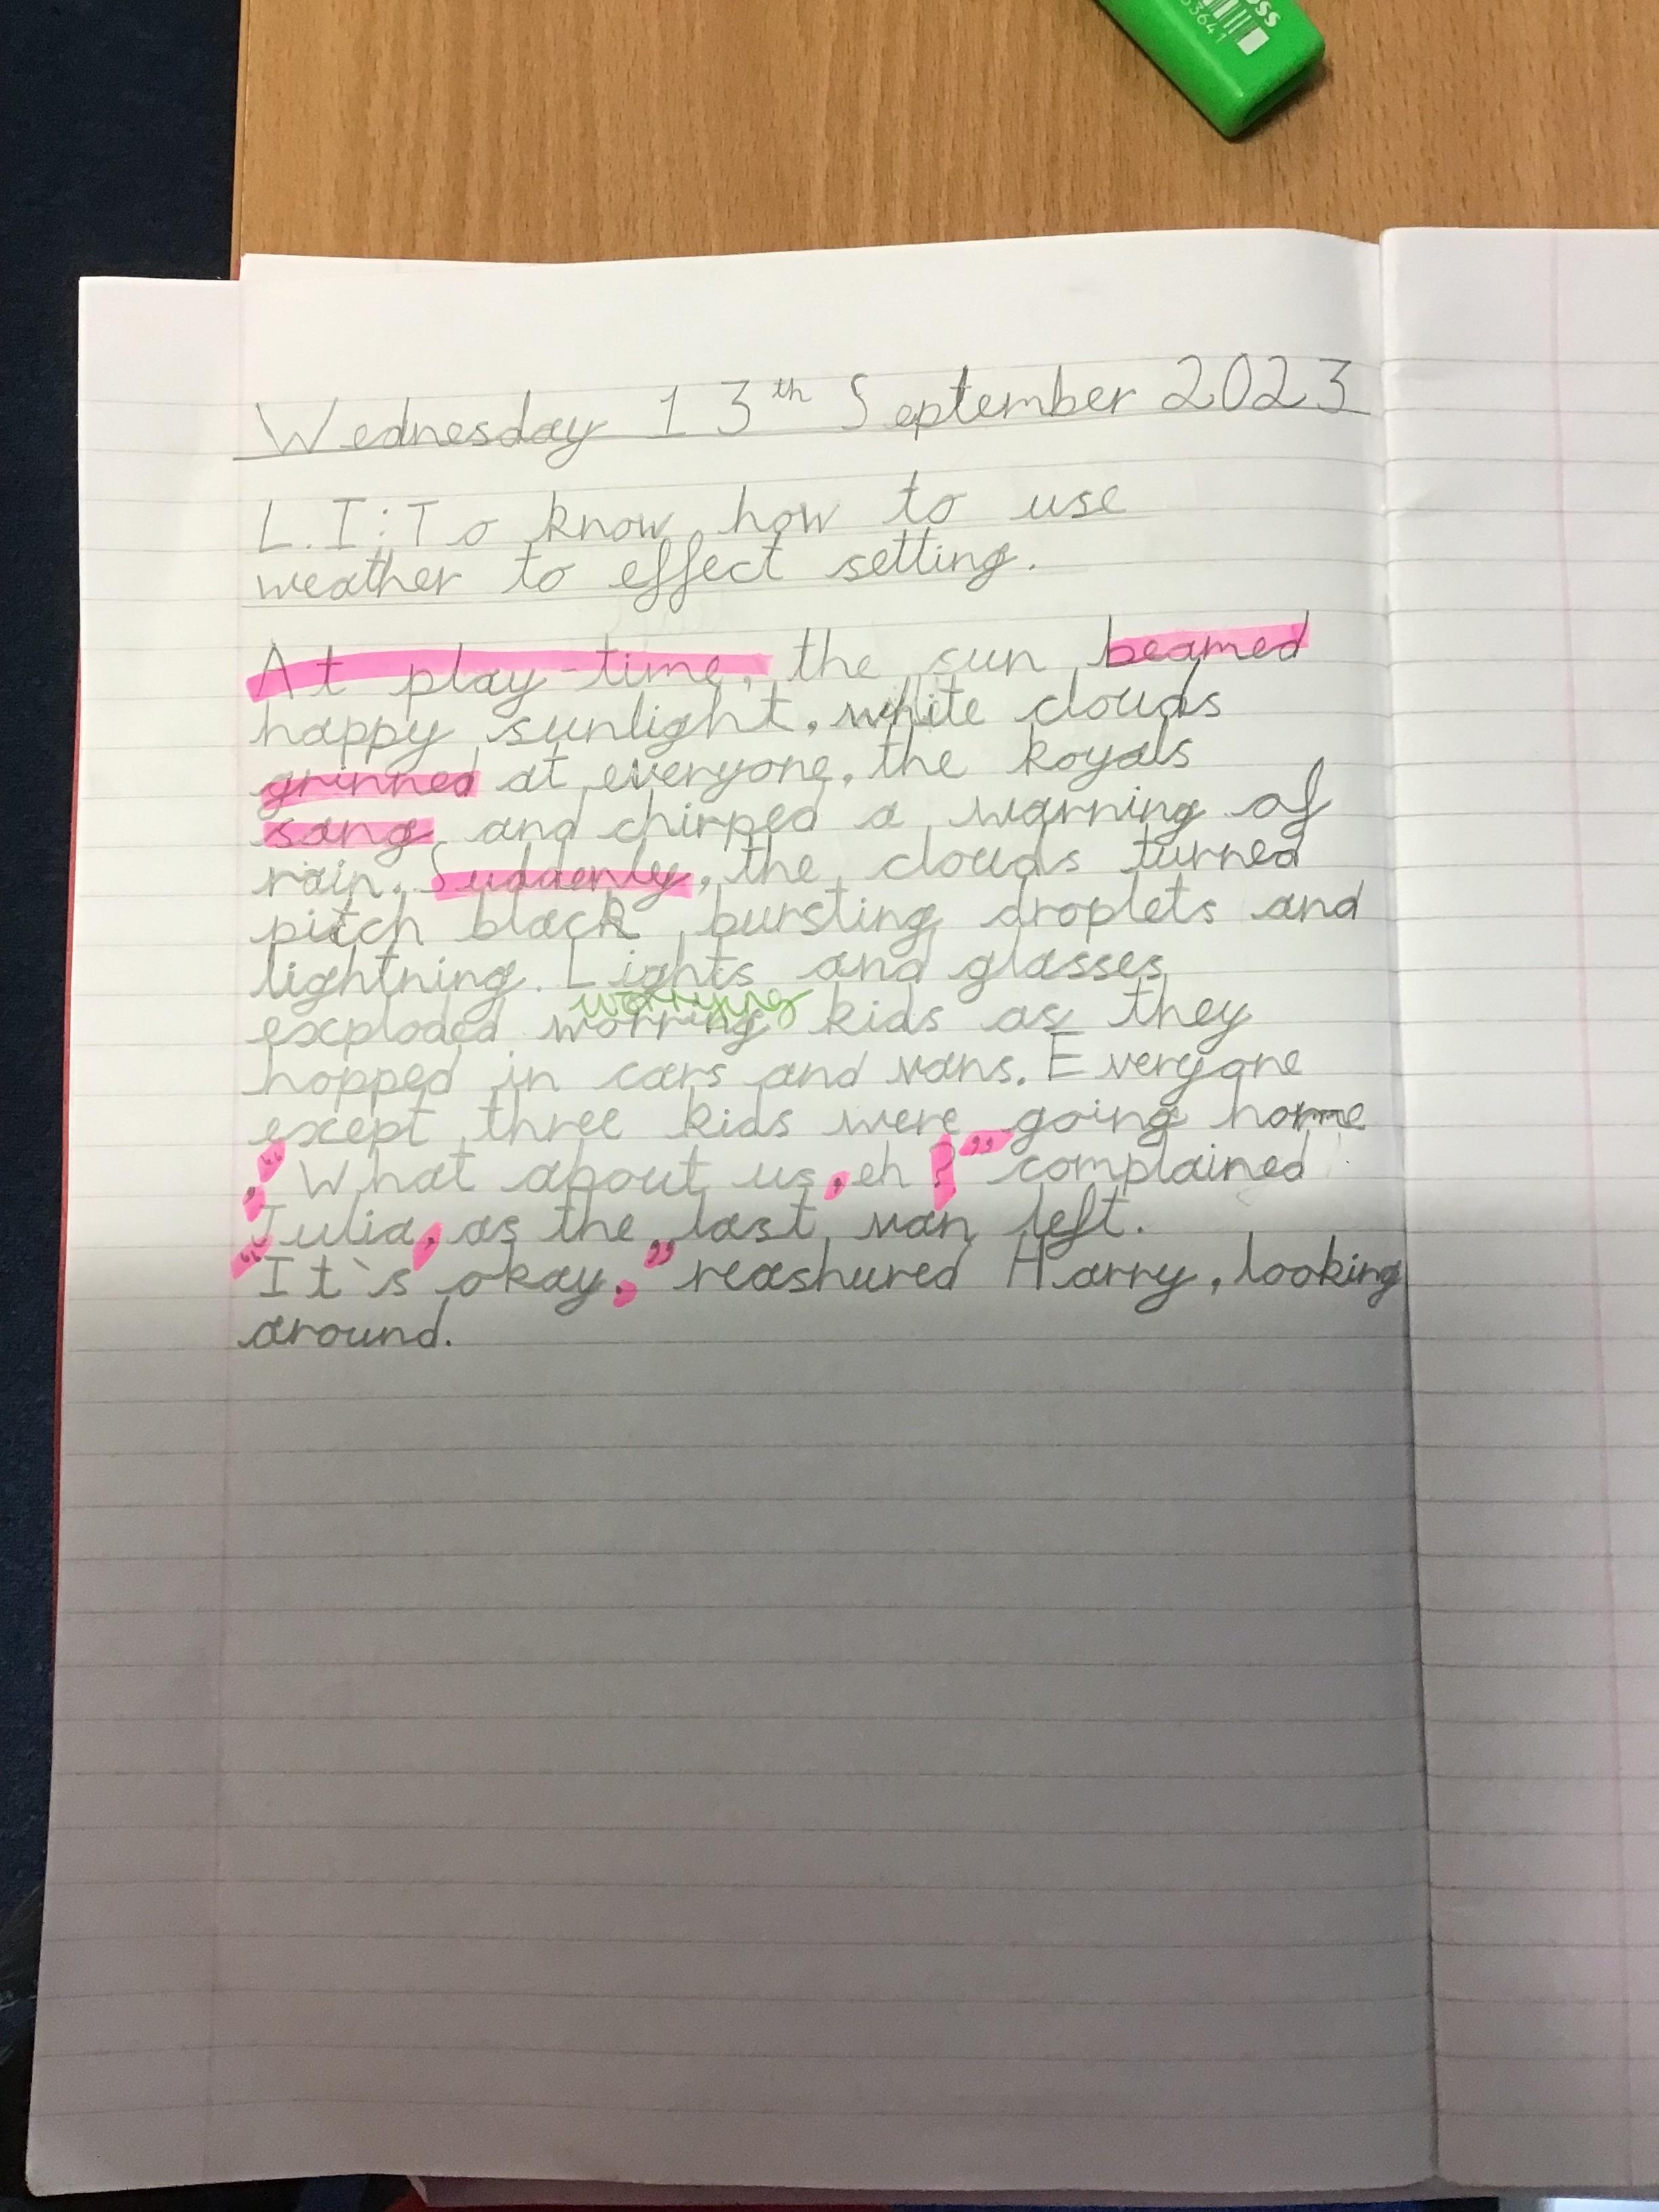 OSS
53641
Wednesday 13th September 2023
L.I: To know how to use
weather to effect setting.
At play-time, the sun beamed
happy sunlight, white clouds
grinned at everyone, the Royals
sang and chirped a warning of
rain. Suddenly, the clouds turned
pitch black bursting droplets and
lightning. Lights and glasses
worrying
exploded worring kids as they
hopped in cars and vans. Everyone
except three kids were going home
, “What about us, eh?” complained
Julia, as the last van left.
“It`s okay,” reashured Harry, looking
around.